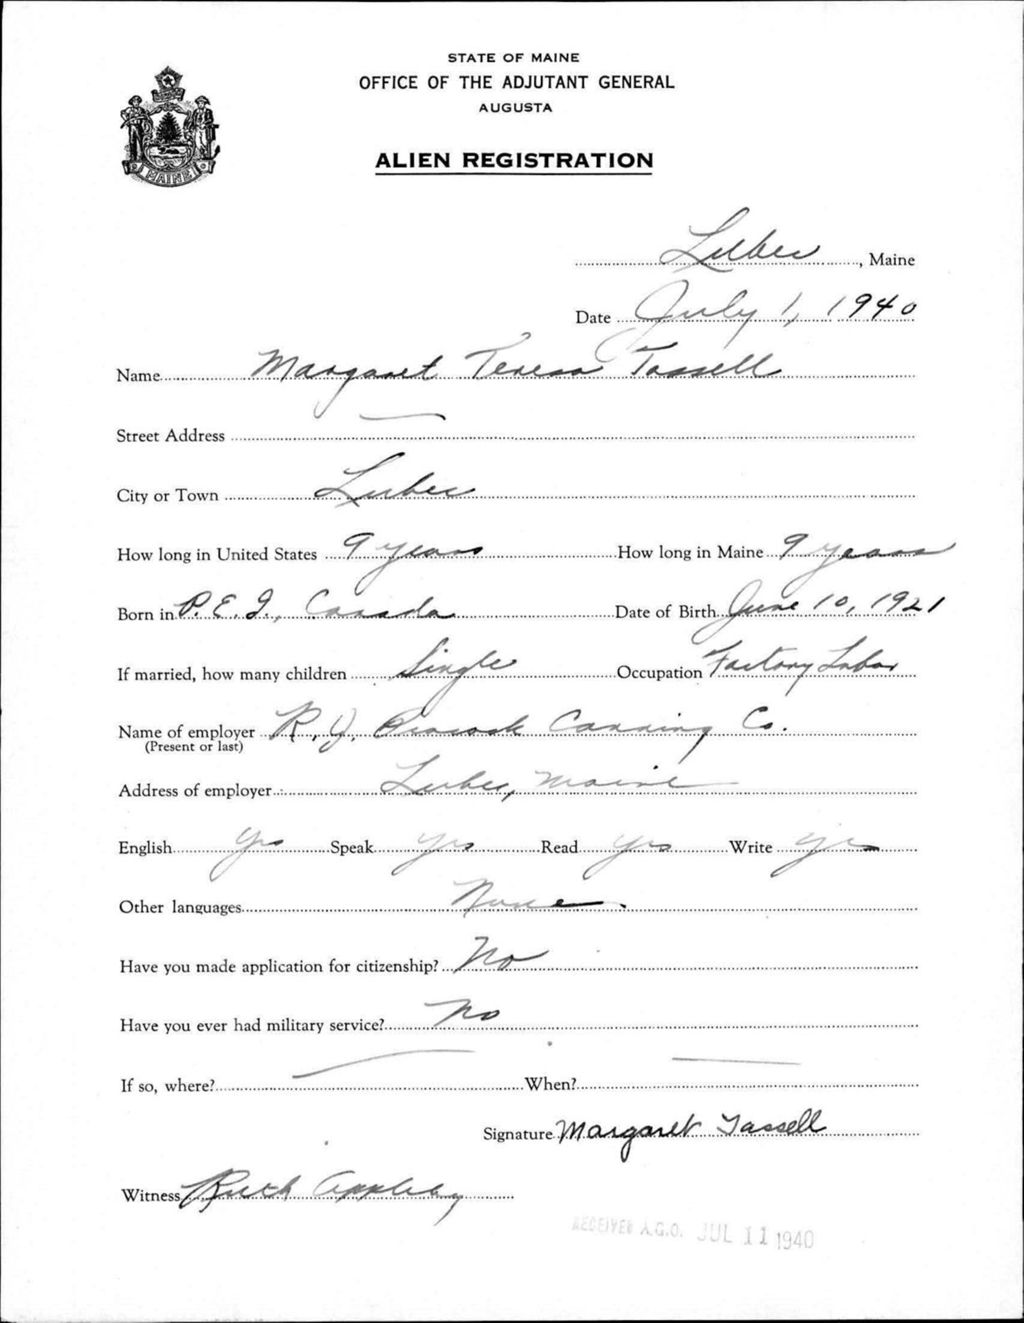 STATE OF MAINE
OFFICE OF THE ADJUTANT GENERAL
AUGUSTA
ALIEN REGISTRATION
MAINE
Lubec, Maine
Date July 1, 1940
Name Margaret Teresa Tassell
Street Address —
City or Town Lubec
How long in United States 9 years How long in Maine 9 years
Born in P.E.I., Canada Date of Birth June 10, 1921
If married, how many children Single Occupation Factory Labor
Name of employer R. J. Peacock Canning Co.
(Present or last)
Address of employer Lubec, Maine
English Yes Speak Yes Read Yes Write Yes
Other languages None.
Have you made application for citizenship? No
Have you ever had military service? No
If so, where? — When? —
Signature Margaret Tassell
Witness Ruth Appleby
RECEIVED A.G.O. JUL 11 1940